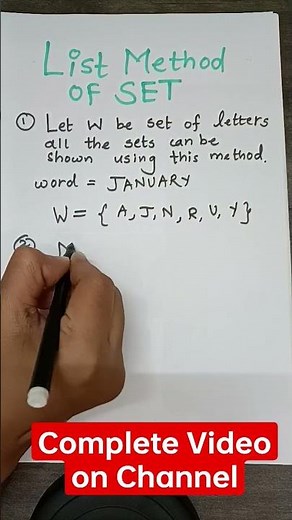 List Method
OF SET
① Let W be set of letters
all the sets can be
shown using this method.
word = JANUARY
W = { A, J, N, R, U, Y }
②
Complete Video
on Channel